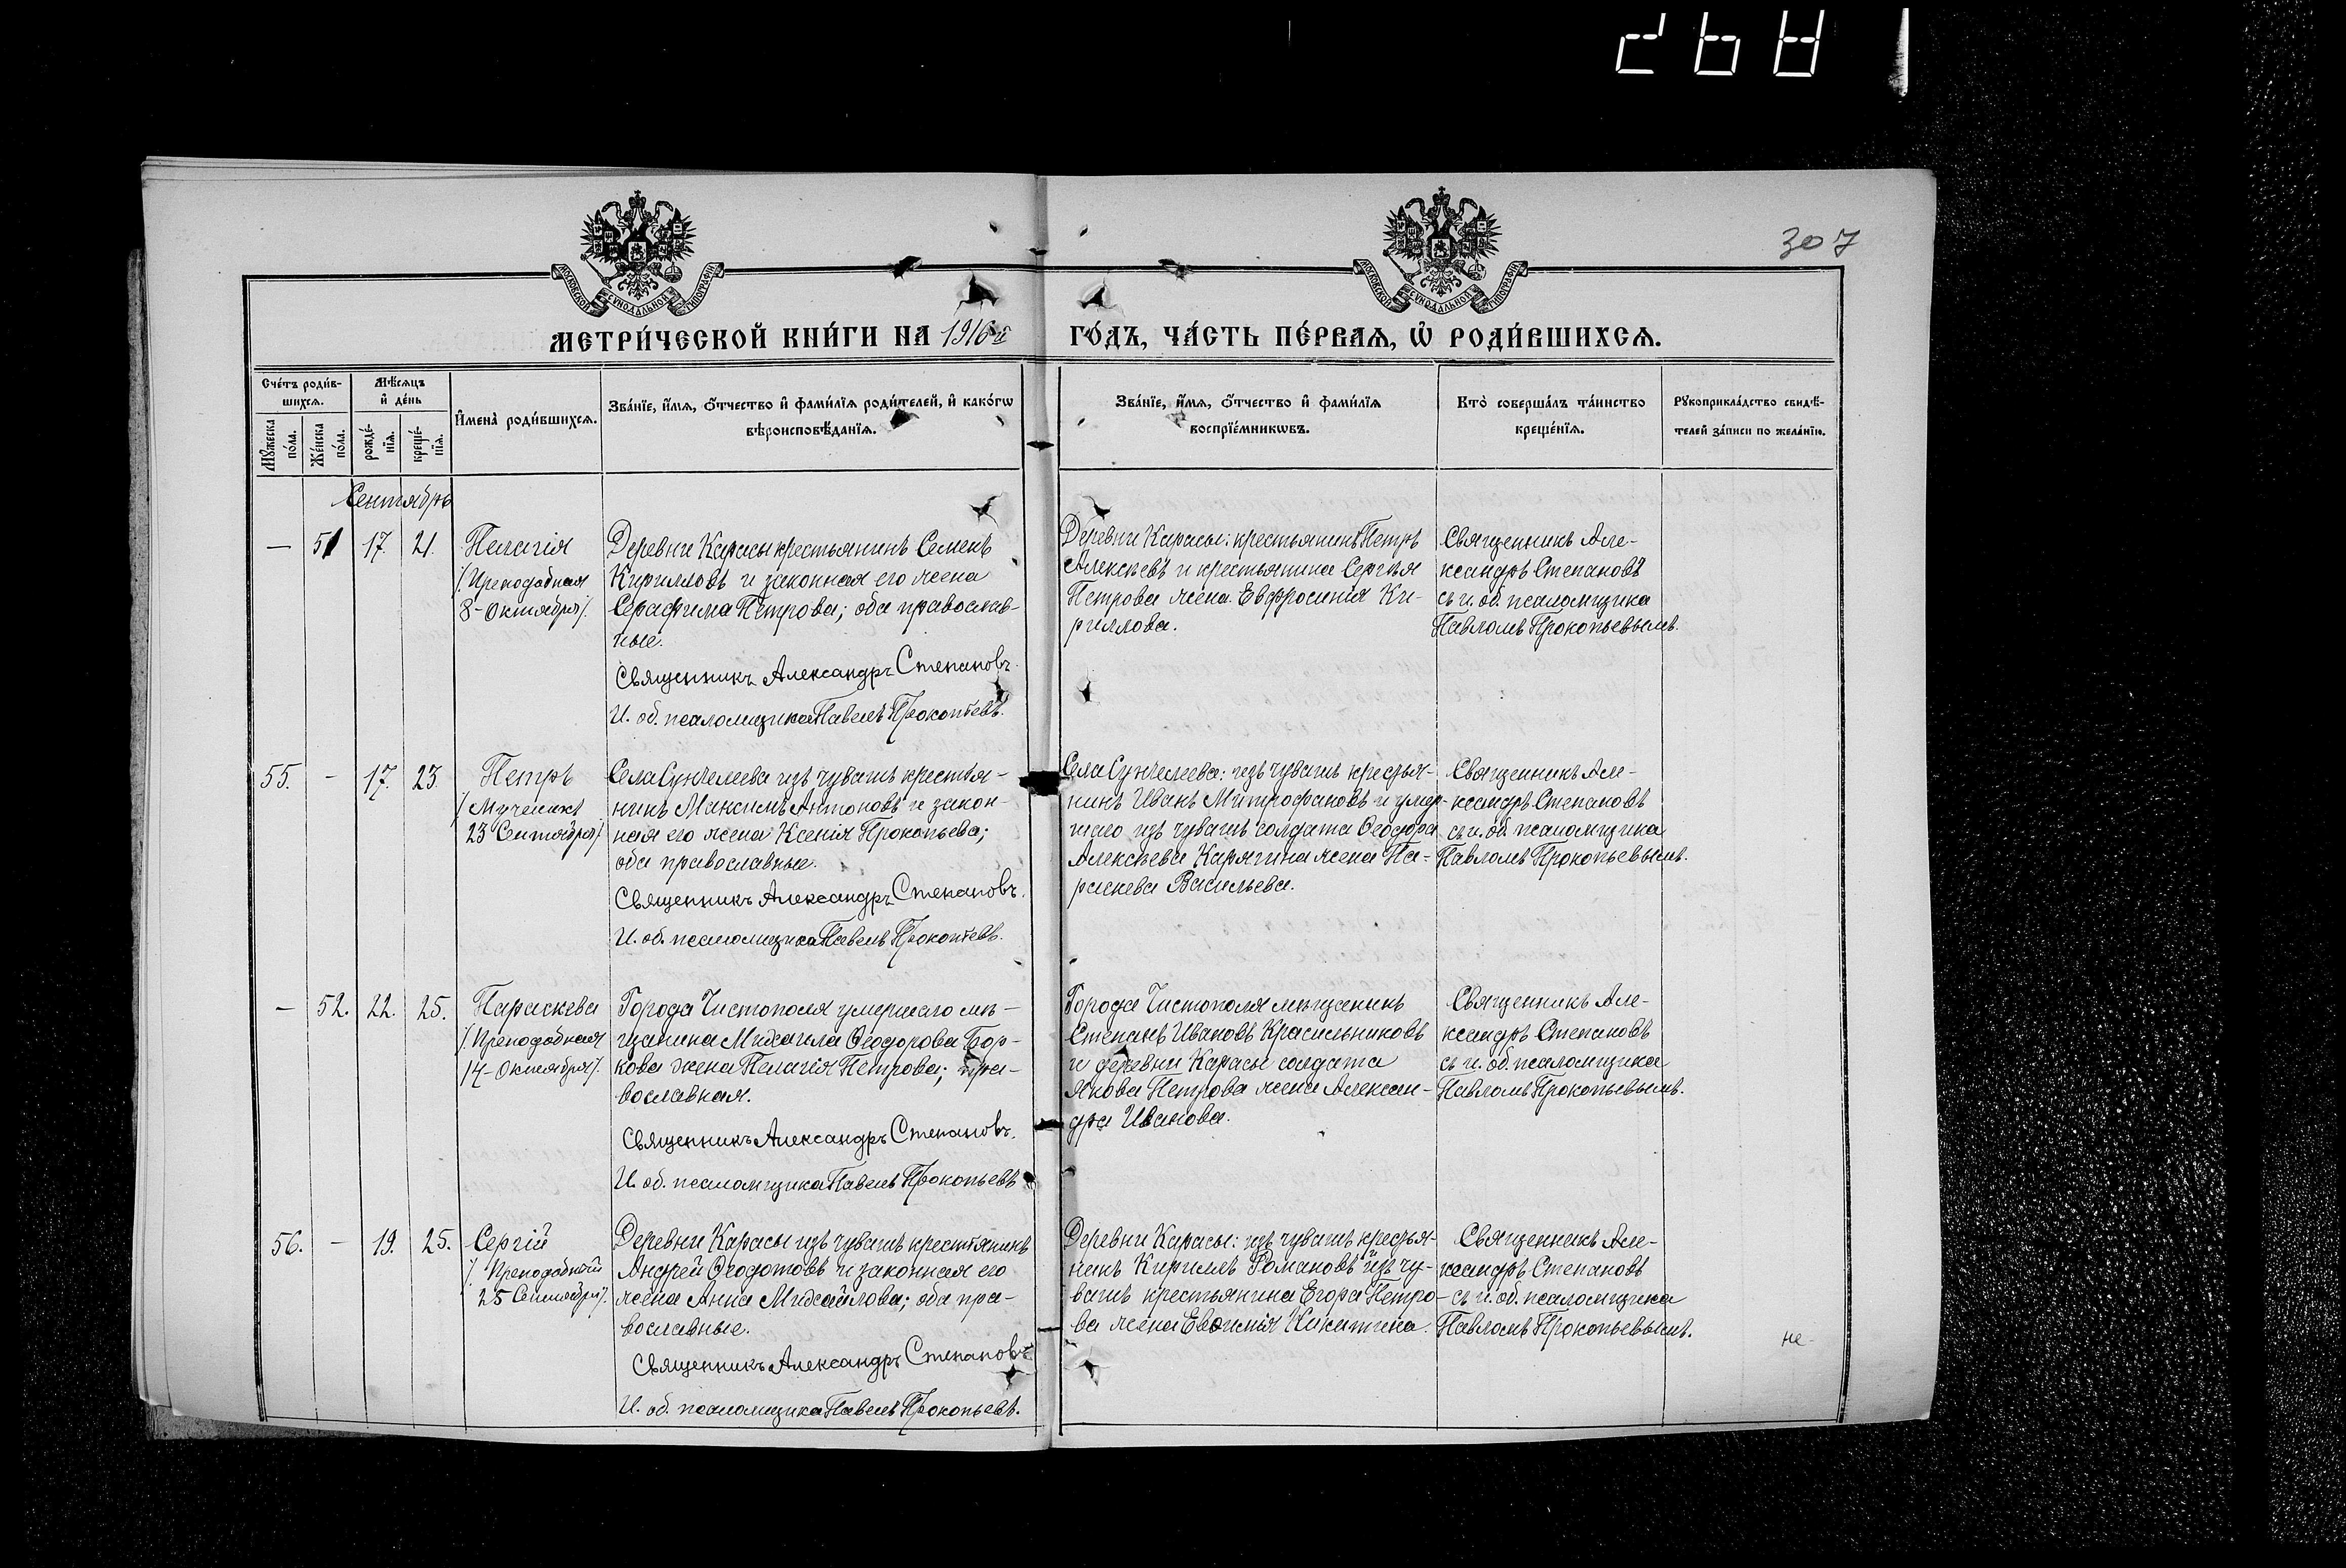 307
МОСКОВСКОЙ СѴНОДАЛЬНОЙ ТИПОГРАФІИ
МОСКОВСКОЙ СѴНОДАЛЬНОЙ ТИПОГРАФІИ
МЕТРИ́ЧЕСКОЙ КНИ́ГИ НА 1916-й ГО́ДЪ, ЧА́СТЬ ПЕ́РВАѦ, Ѽ РОДИ́ВШИХСѦ.
Сче́тъ роди́в-
шихсѧ.
Мѣ́сѧцъ
и҆ де́нь
Мꙋ́жеска по́ла.
Же́нска по́ла.
рожде́-
нїѧ.
креще́-
нїѧ.
И҆мена̀ роди́вшихсѧ.
Зва́нїе, и҆́мѧ, ѻ҆́тчество и҆ фами́лїѧ роди́телей, и҆ како́гѡ
вѣроисповѣ́данїѧ.
Зва́нїе, и҆́мѧ, ѻ҆́тчество и҆ фами́лїѧ
воспрїе́мникѡвъ.
Кто̀ соверша́лъ та́инство
креще́нїѧ.
Рꙋкоприкла́дство свидѣ́-
телей за́писи по жела́нїю.
Сентябрь
— 51 17. 21.
Пелагія
/.Преподобная
8-Октября/.
Деревни Карасы крестьянинъ Семенъ
Кирилловъ и законная его жена
Серафима Петрова; оба православ-
ные.
Священникъ Александръ Степановъ.
И. об. псаломщика Павелъ Прокопьевъ.
Деревни Карасы: крестьянинъ Петръ
Алексѣевъ и крестьянина Сергѣя
Петрова жена Евфросинія Ки-
риллова.
Священникъ Але-
ксандръ Степановъ
съ и. об. псаломщика
Павломъ Прокопьевымъ.
55. - 17. 23.
Петръ
/.Мученикъ
23 Сентября/.
Села Сунчелеева изъ чувашъ крестья-
нинъ Максимъ Антоновъ и закон-
ная его жена Ксенія Прокопьева;
оба православные.
Священникъ Александръ Степановъ.
И. об. псаломщика Павелъ Прокопьевъ.
Села Сунчелеева: изъ чувашъ крестья-
нинъ Иванъ Митрофановъ и умер-
шаго изъ чувашъ солдата Ѳеодора
Алексѣева Карягина жена Па-
раскева Васильева.
Священникъ Але-
ксандръ Степановъ
съ и. об. псаломщика
Павломъ Прокопьевымъ.
— 52. 22. 25.
Параскева
/.Преподобная
14-Октября/.
Города Чистополя умершаго мѣ-
щанина Михаила Ѳеодорова Бор-
кова жена Пелагія Петрова; пра-
вославная.
Священникъ Александръ Степановъ.
И. об. псаломщика Павелъ Прокопьевъ
Города Чистополя мѣщанинъ
Степанъ Ивановъ Красильниковъ
и деревни Карасы солдата
Якова Петрова жена Алексан-
дра Иванова.
Священникъ Але-
ксандръ Степановъ
съ и. об. псаломщика
Павломъ Прокопьевымъ.
56. — 19. 25.
Сергій
/.Преподобный
25 Сентября/.
Деревни Карасы изъ чувашъ крестьянинъ
Андрей Ѳеодотовъ и законная его
жена Анна Михайлова; оба пра-
вославные.
Священникъ Александръ Степановъ
И. об. псаломщика Павелъ Прокопьевъ.
Деревни Карасы: изъ чувашъ крестья-
нинъ Кириллъ Романовъ и изъ чу-
вашъ крестьянина Егора Петро-
ва жена Евѳимія Никитина.
Священникъ Але-
ксандръ Степановъ
съ и. об. псаломщика
Павломъ Прокопьевымъ.
не